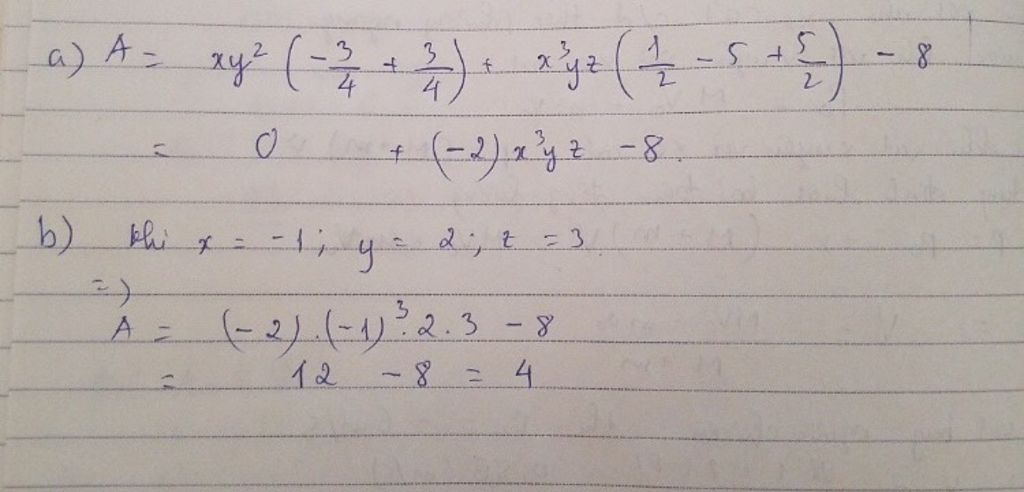 a) A = xy² (-3/4 + 3/4) + x³yz (1/2 - 5 + 5/2) - 8
= 0 + (-2) x³yz - 8.
b) khi x = -1; y = 2; z = 3.
=)
A = (-2).(-1)³.2.3 - 8
= 12 - 8 = 4